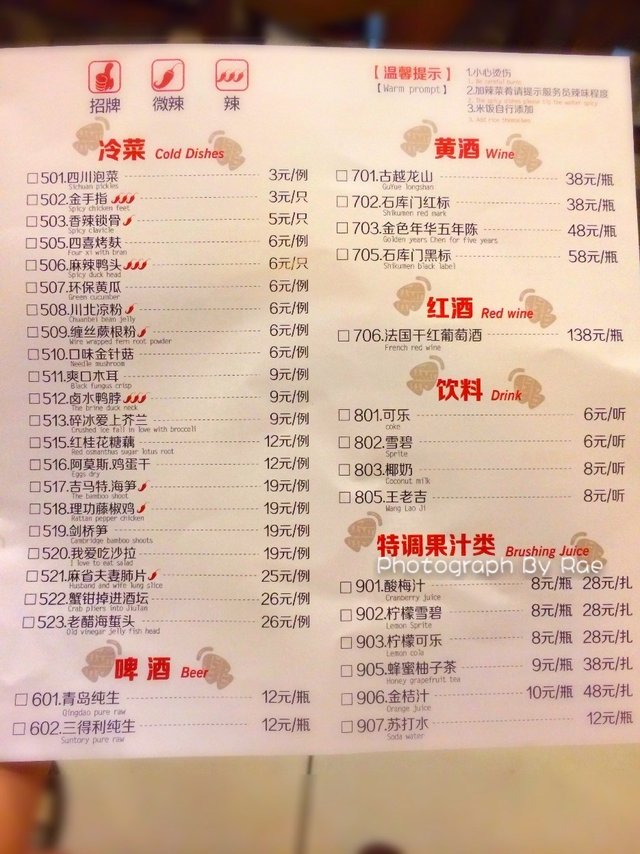 招牌
微辣
辣
【温馨提示】
【Warm prompt】
1.小心烫伤
1. Be careful burns
2.加辣菜肴请提示服务员辣味程度
3.米饭自行添加
3. Add rice themselves
冷菜 Cold Dishes
501.四川泡菜 3元/例
Sichuan pickles
502.金手指 3元/只
Spicy chicken feet
503.香辣锁骨 5元/只
Spicy clavicle
505.四喜烤麸 6元/例
Four xi with bran
506.麻辣鸭头 6元/只
Spicy duck head
507.环保黄瓜 6元/例
Green cucumber
508.川北凉粉 6元/例
Chuanbei bean jelly
509.缠丝蕨根粉 6元/例
Wire wrapped fern root powder
510.口味金针菇 6元/例
Needle mushroom
511.爽口木耳 9元/例
Black fungus crisp
512.卤水鸭脖 9元/例
The brine duck neck
513.碎冰爱上芥兰 9元/例
Crushed ice fall in love with broccoli
515.红桂花糖藕 12元/例
Red osmanthus sugar lotus root
516.阿莫斯.鸡蛋干 12元/例
Eggs dry
517.吉马特.海笋 19元/例
The bamboo shoot
518.理功藤椒鸡 19元/例
Rattan pepper chicken
519.剑桥笋 19元/例
Cambridge bamboo shoots
520.我爱吃沙拉 19元/例
I love to eat salad
521.麻省夫妻肺片 25元/例
Husband and wife lung slice
522.蟹钳掉进酒坛 26元/例
Crab pliers into Jiulan
523.老醋海蜇头 26元/例
Old vinegar jelly fish head
啤酒 Beer
601.青岛纯生 12元/瓶
Qingdao pure raw
602.三得利纯生 12元/瓶
Suntory pure raw
黄酒 Wine
701.古越龙山 38元/瓶
GuYue longshan
702.石库门红标 38元/瓶
Shikumen red mark
703.金色年华五年陈 48元/瓶
Golden years Chen for five years
705.石库门黑标 58元/瓶
Shikumen black label
红酒 Red wine
706.法国干红葡萄酒 138元/瓶
French red wine
饮料 Drink
801.可乐 6元/听
coke
802.雪碧 6元/听
Sprite
803.椰奶 8元/听
Coconut milk
805.王老吉 8元/听
Wang Lao Ji
特调果汁类 Brushing Juice
Photograph By Rae
901.酸梅汁 8元/瓶 28元/扎
Cranberry juice
902.柠檬雪碧 8元/瓶 28元/扎
Lemon Sprite
903.柠檬可乐 8元/瓶 28元/扎
Lemon cola
905.蜂蜜柚子茶 9元/瓶 38元/扎
Honey grapefruit tea
906.金桔汁 10元/瓶 48元/扎
Orange juice
907.苏打水 12元/瓶
Soda water